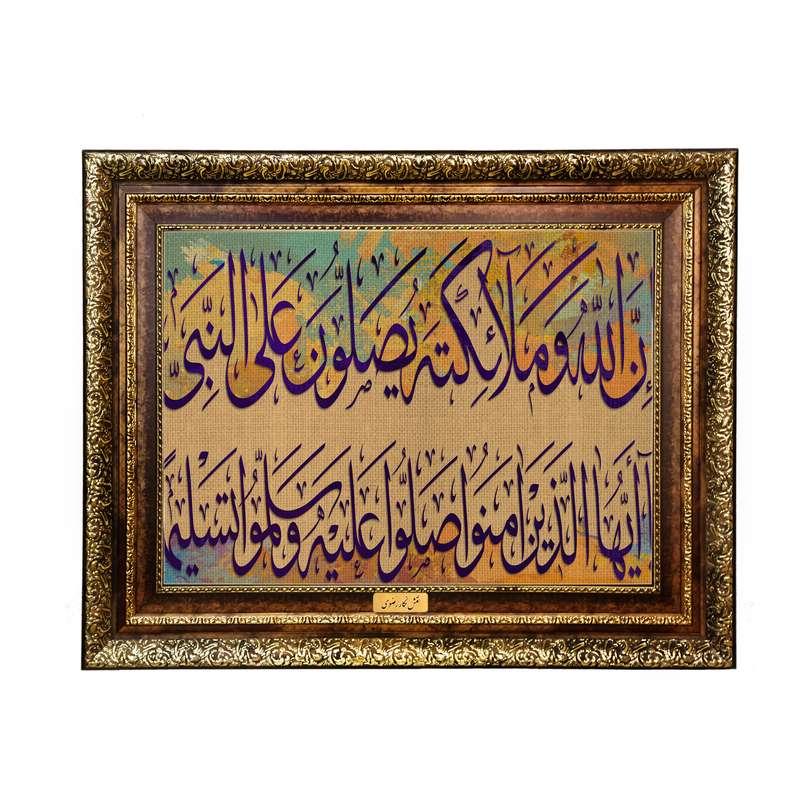 إنّ اللّه وملآئكته يصلّون على النبىّ
آأيّها الذين امنوا صلّوا عليه وسلّموا تسليم
نقش نگار رضوی